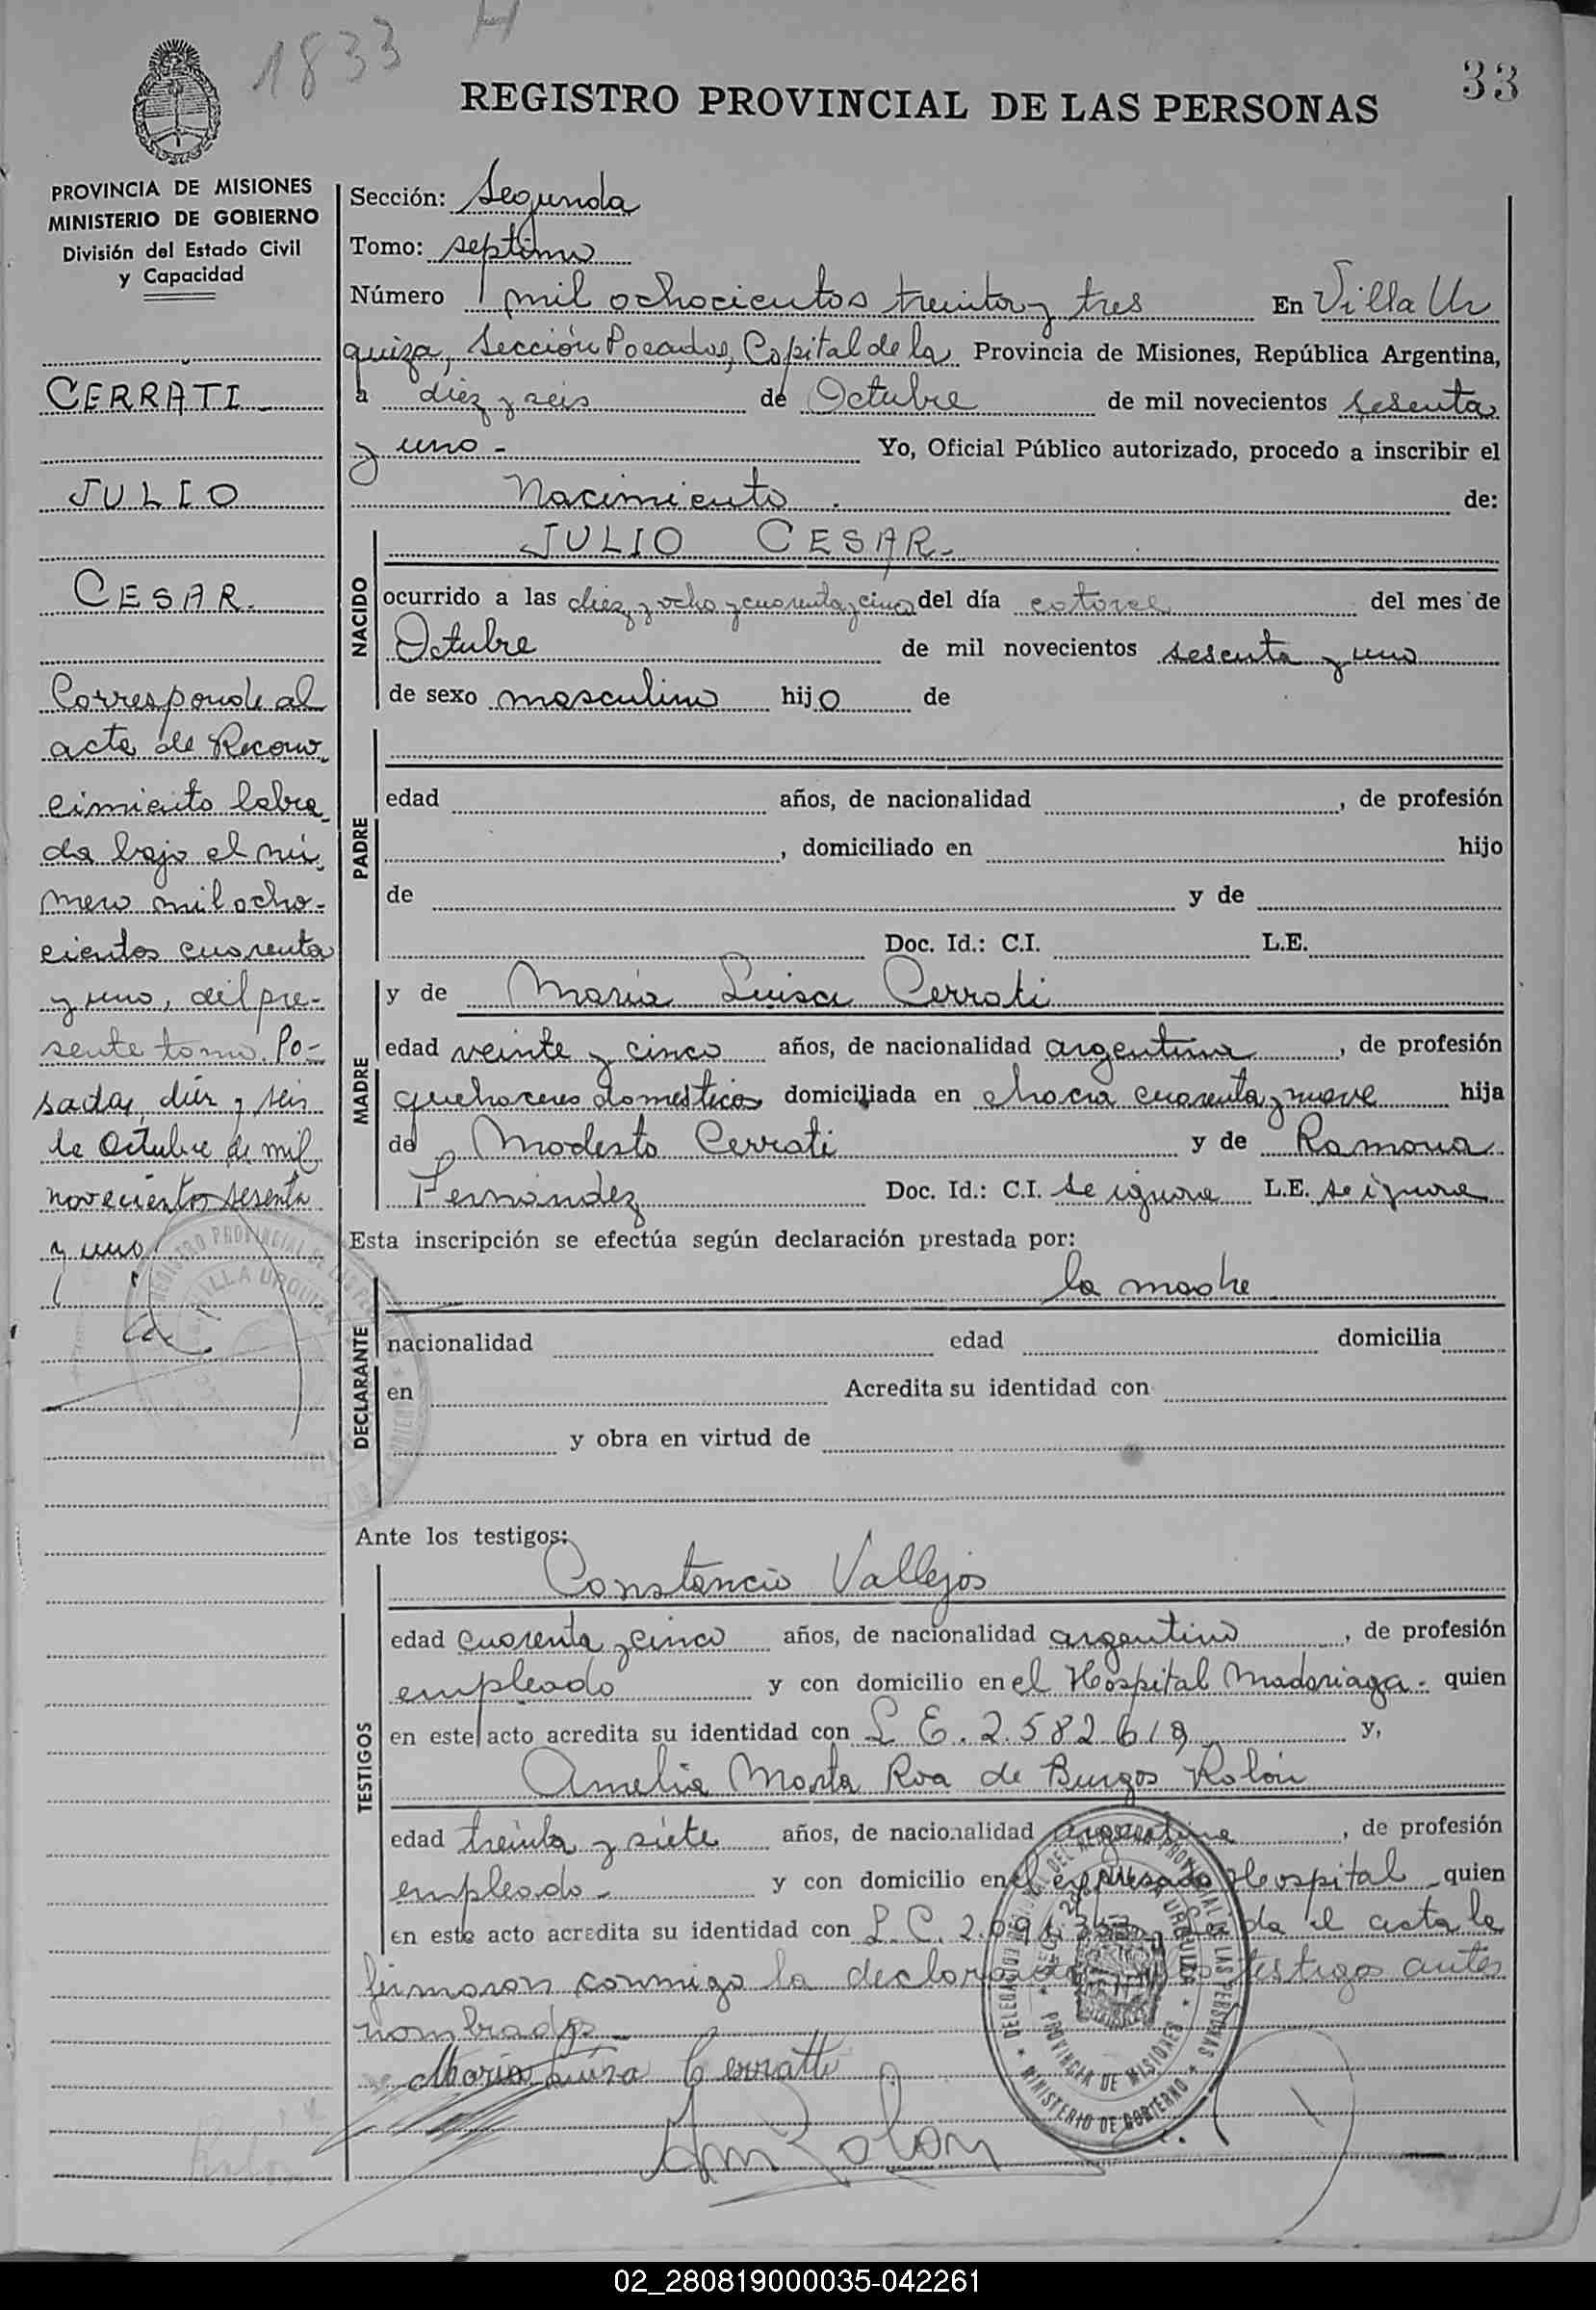 1833 H
33
REGISTRO PROVINCIAL DE LAS PERSONAS
PROVINCIA DE MISIONES
MINISTERIO DE GOBIERNO
División del Estado Civil
y Capacidad
CERRATI
JULIO
CESAR.
Corresponde al
acta de Recono-
cimiento labra-
da bajo el nú-
mero mil ocho-
cientos cuarenta
y uno, del pre-
sente tomo. Po-
sadas, diez y seis
de Octubre de mil
novecientos sesenta
y uno
Sección: Segunda
Tomo: septimo
Número mil ochocientos treinta y tres En Villa Ur
quiza, Sección Posadas, Capital de la Provincia de Misiones, República Argentina,
a diez y seis de Octubre de mil novecientos sesenta
y uno - Yo, Oficial Público autorizado, procedo a inscribir el
Nacimiento de:
NACIDO
JULIO CESAR.-
ocurrido a las diez y ocho y cuarenta y cinco del día catorce del mes de
Octubre de mil novecientos sesenta y uno
de sexo masculino hijo de
PADRE
edad años, de nacionalidad , de profesión
, domiciliado en hijo
de y de
Doc. Id.: C.I. L.E.
MADRE
y de María Luisa Cerrati
edad veinte y cinco años, de nacionalidad argentina , de profesión
quehaceres domesticos domiciliada en chacra cuarenta y nueve hija
de Modesto Cerrati y de Ramona
Fernández Doc. Id.: C.I. se ignora L.E. se ignora
Esta inscripción se efectúa según declaración prestada por:
DECLARANTE
la madre
nacionalidad edad domicilia
en Acredita su identidad con
y obra en virtud de
Ante los testigos:
TESTIGOS
Constancio Vallejos
edad cuarenta y cinco años, de nacionalidad argentino , de profesión
empleado y con domicilio en el Hospital Madariaga - quien
en este acto acredita su identidad con L E. 2.582.619 y,
Amelia Marta Roa de Burgos Rolón
edad treinta y siete años, de nacionalidad argentina , de profesión
empleado - y con domicilio en el expresado Hospital - quien
en este acto acredita su identidad con L.C. Leída el acta la
firmaron conmigo la declarante y los testigos antes
nombrados -
María Luisa Cerratti
Am Rolon
DELEGACION DEL REGISTRO PROVINCIAL DE LAS PERSONAS
MINISTERIO DE GOBIERNO
PROVINCIA DE MISIONES
02_280819000035-042261